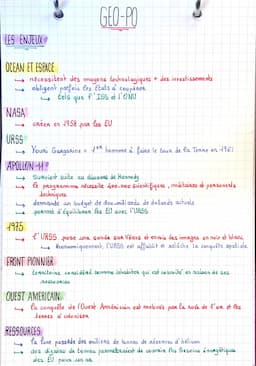 GEO-PO
LES ENJEUX
OCEAN ET ESPACE
→ nécessitent des moyens technologiques + des investissements
→ obligent parfois les Etats à coopérer
→ tels que l'ISS et l'ONU
NASA
→ créée en 1958 par les EU
URSS
→ Youri Gagarine = 1er homme à faire le tour de la Terre en 1961
APOLLON 11
→ Survient suite au discours de Kennedy
→ le programme nécessite 400.000 scientifiques, militaires et personnels
techniques
→ demande un budget de milliards de dollards actuels
→ permet d'équilibrer les EU avec l'URSS
1975
→ l'URSS pose une sonde sur Vénus et envoie des images en noir et blanc
→ économiquement, l'URSS est affaiblit et relâche la conquête spatiale
FRONT PIONNIER
→ territoire considéré comme inhabités qui est convoité en raison de ses
ressources
OUEST AMERICAIN
→ la conquête de l'Ouest Américain est motivée par la ruée de l'or et les
terres à coloniser
RESSOURCES
→ la lune possède des millions de tonnes de réserves d'hélium
→ des dizaines de tonnes permettraient de couvrir les besoins énergétiques
des EU pour un an